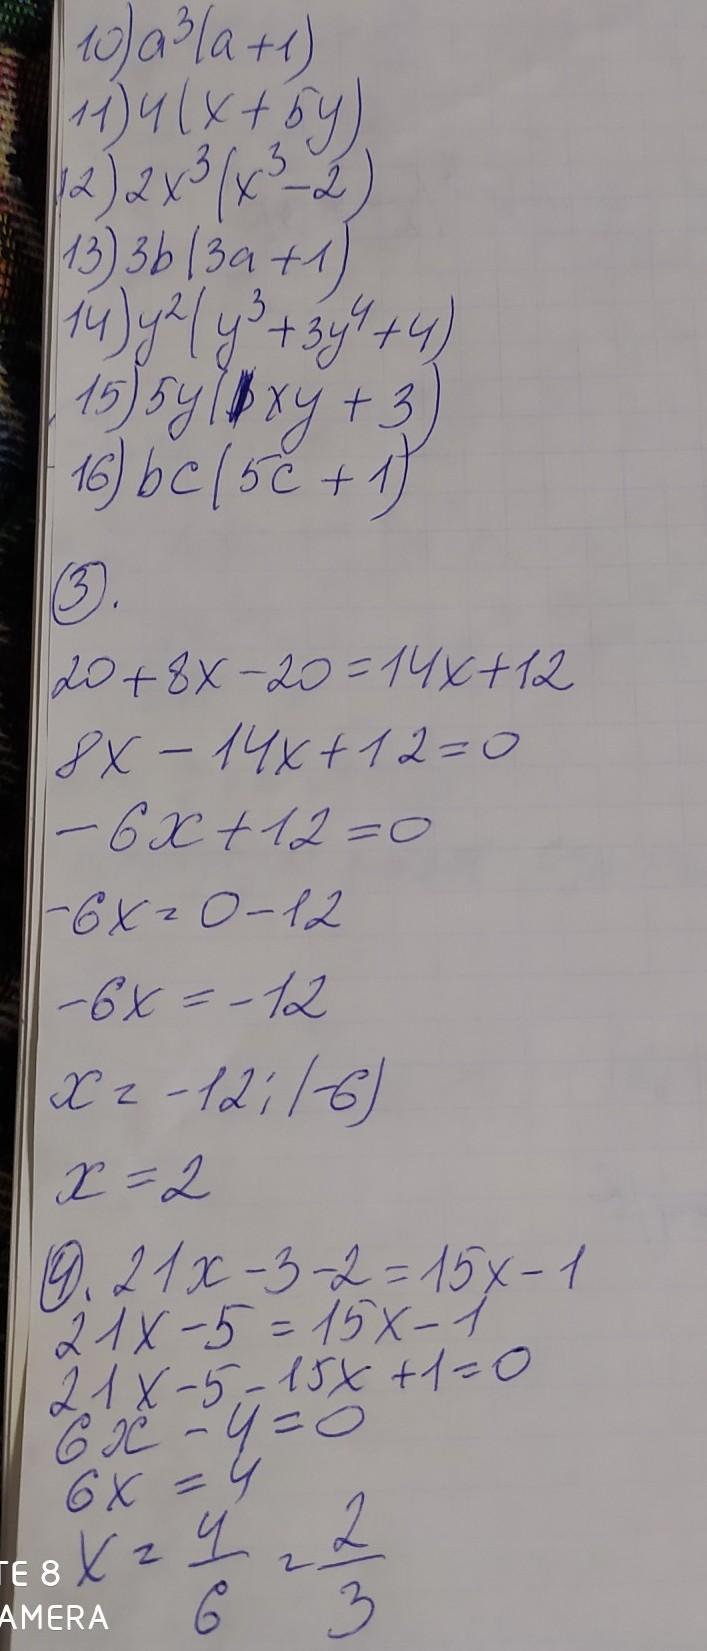 10) a³(a+1)
11) 4(x+5y)
12) 2x³(x³-2)
13) 3b(3a+1)
14) y²(y³+3y⁴+4)
15) 5y(xy+3)
16) bc(5c+1)
3.
20+8x-20=14x+12
8x-14x+12=0
-6x+12=0
-6x=0-12
-6x=-12
x=-12:(-6)
x=2
4. 21x-3-2=15x-1
21x-5=15x-1
21x-5-15x+1=0
6x-4=0
6x=4
x=4/6=2/3
TE 8
AMERA